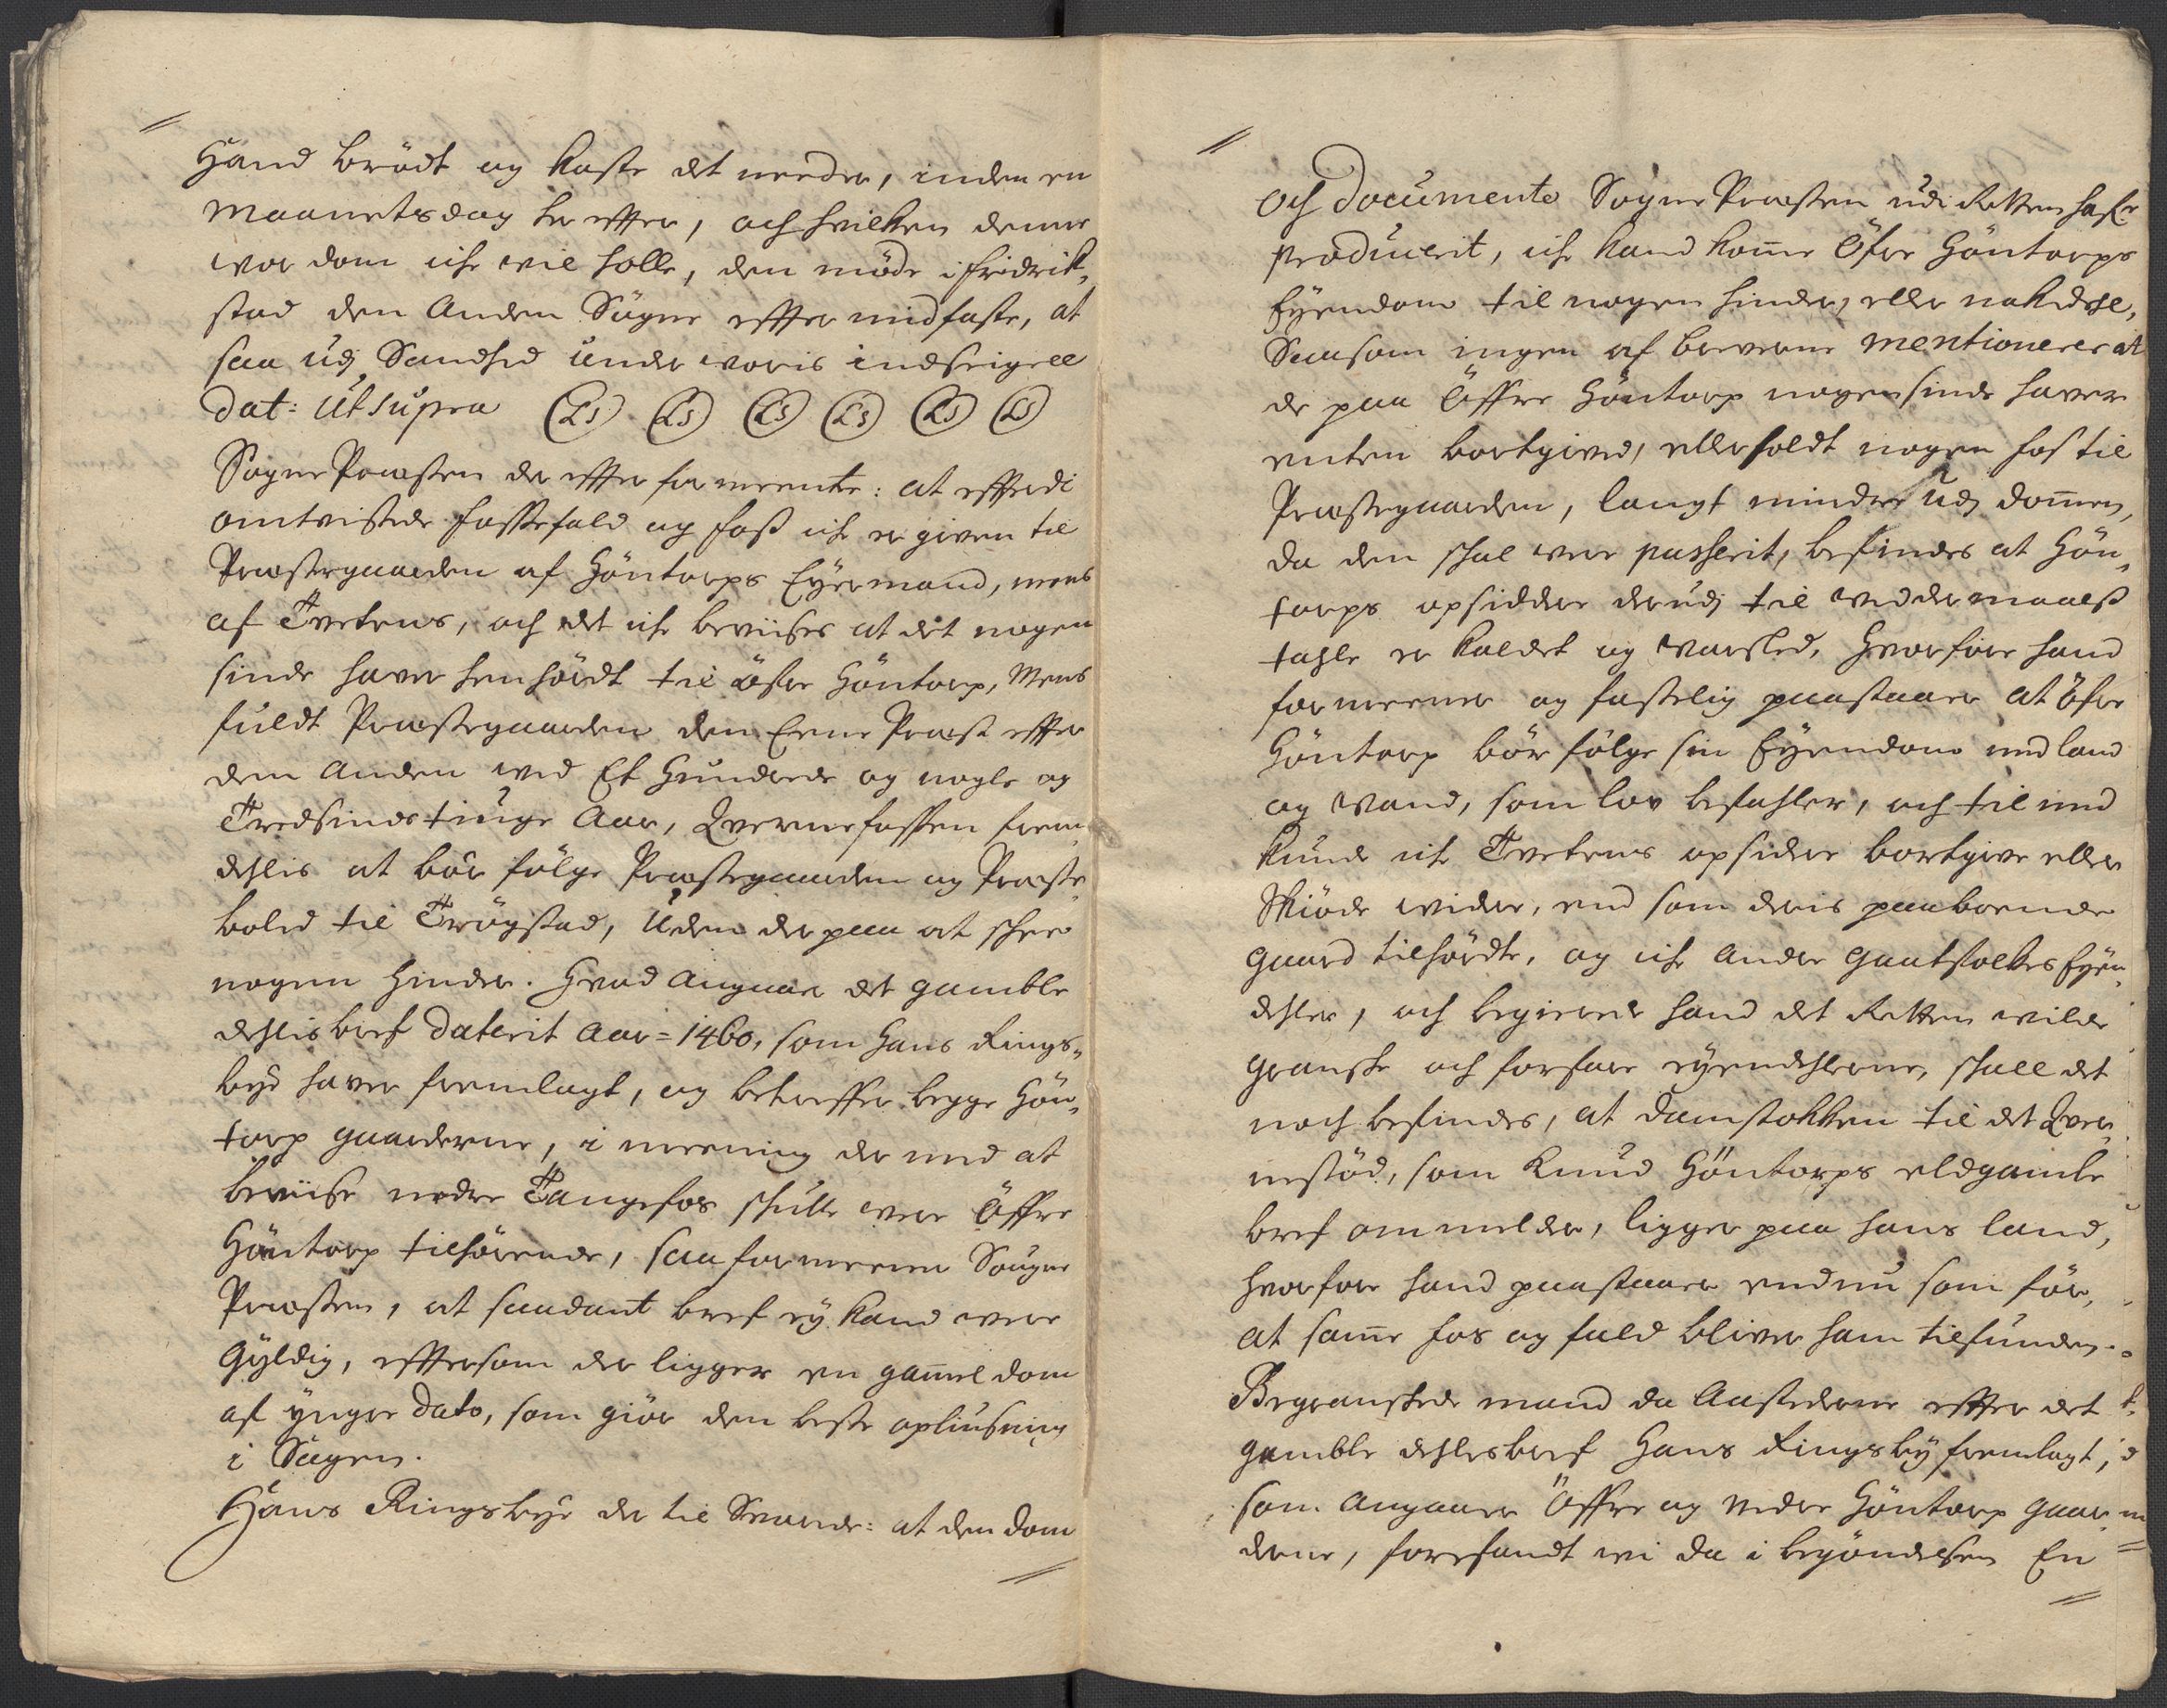 Hand brödt og kaste det needer, inden en
Maanetsdag her effter, och hvilken denne
wor dom iche wil holle, den möde i Fridrik,
stad den Anden Sögne effter midfaste, at
saa udj Sandhed under woris indseigell
dat: Ut supra (LS) (LS) (LS) (LS) (LS) (LS)
Sogne Præsten der effter formeente: at effterdi
omtvistede fossefald og foss iche er given til
Præstegaarden af Höntorps Eyermand, mens
af Tvetens, och det iche beviises at det nogen
sinde haver henhördt til öfre Höntorp, Mens
fuldt Præstegaarden den Eene Præst effter
den anden wed Et Hundrede og nogle og
Tredsindstiuge Aar, Qvernefossen frem,
dehlis at bör fölge Præstegaarden og Præste,
boled til Trögstad, Uden der paa at schee
nogen Hinder. Hvad Angaaer det gamble
dehlisbref daterit Aar = 1460, som Hans Rings,
bye haver fremlagt, og betreffer begge Hön,
torp gaarderne, i meening der med at
beviise nedre Tangefos schulle were Öffre
Höntorp tilhörende, saa formeener Sougne
Præsten, at saadant bref ey kand were
Gyldig, efftersom der ligger en gam̄el dom
af yngre Dato, som giör den beste opliusning
i Sagen.
Hans Ringsbye der til Svarede: at den dom
Och Documente Sogne Præsten udi Retten hafr
producerit, iche kand kom̄e Öfre Höntorps
Eyendom til nogen hinder, eller nakdehl,
Saasom ingen af breverne mentionerer at
de paa Öffre Höntorp nogensinde haver
enten bortgived, eller soldt nogen fos til
Præstegaarden, langt mindre udj dom̄en,
da den schal were passerit, befindes at Hön,
torps opsidder derudj til weddermaals
tahle er kaldet og warsled, Hvorfore hand
formeener og fastelig paastaaer at öfre
Höntorp bör fölge sin Eyendom med land
og Wand, som lov befahler, och til med
kunde iche Tvetens opsidere bortgive eller
Skiöde wider, end som deris paaboende
gaard tilhördte, og iche andre gaatfolkes Eyen,
dehler, och begierede hand det Retten wilde
granske och forfare eyendehlerne, schall det
noch befindes, at damstokken til det Qver,
nestöd, som Knud Höntorps eldgamle
bref ommelder, ligger paa hans land,
hvorfore hand paastaaer endnu som för,
at sam̄e fos og fald bliver ham tilfunden.
Begranskede mand da Aastederne effter det
gamble dehlesbref Hans Ringsby fremlagt,
som angaaer Öffre og nedre Höntorp gaar,
derne, forefandt wi da i begöndelsen En